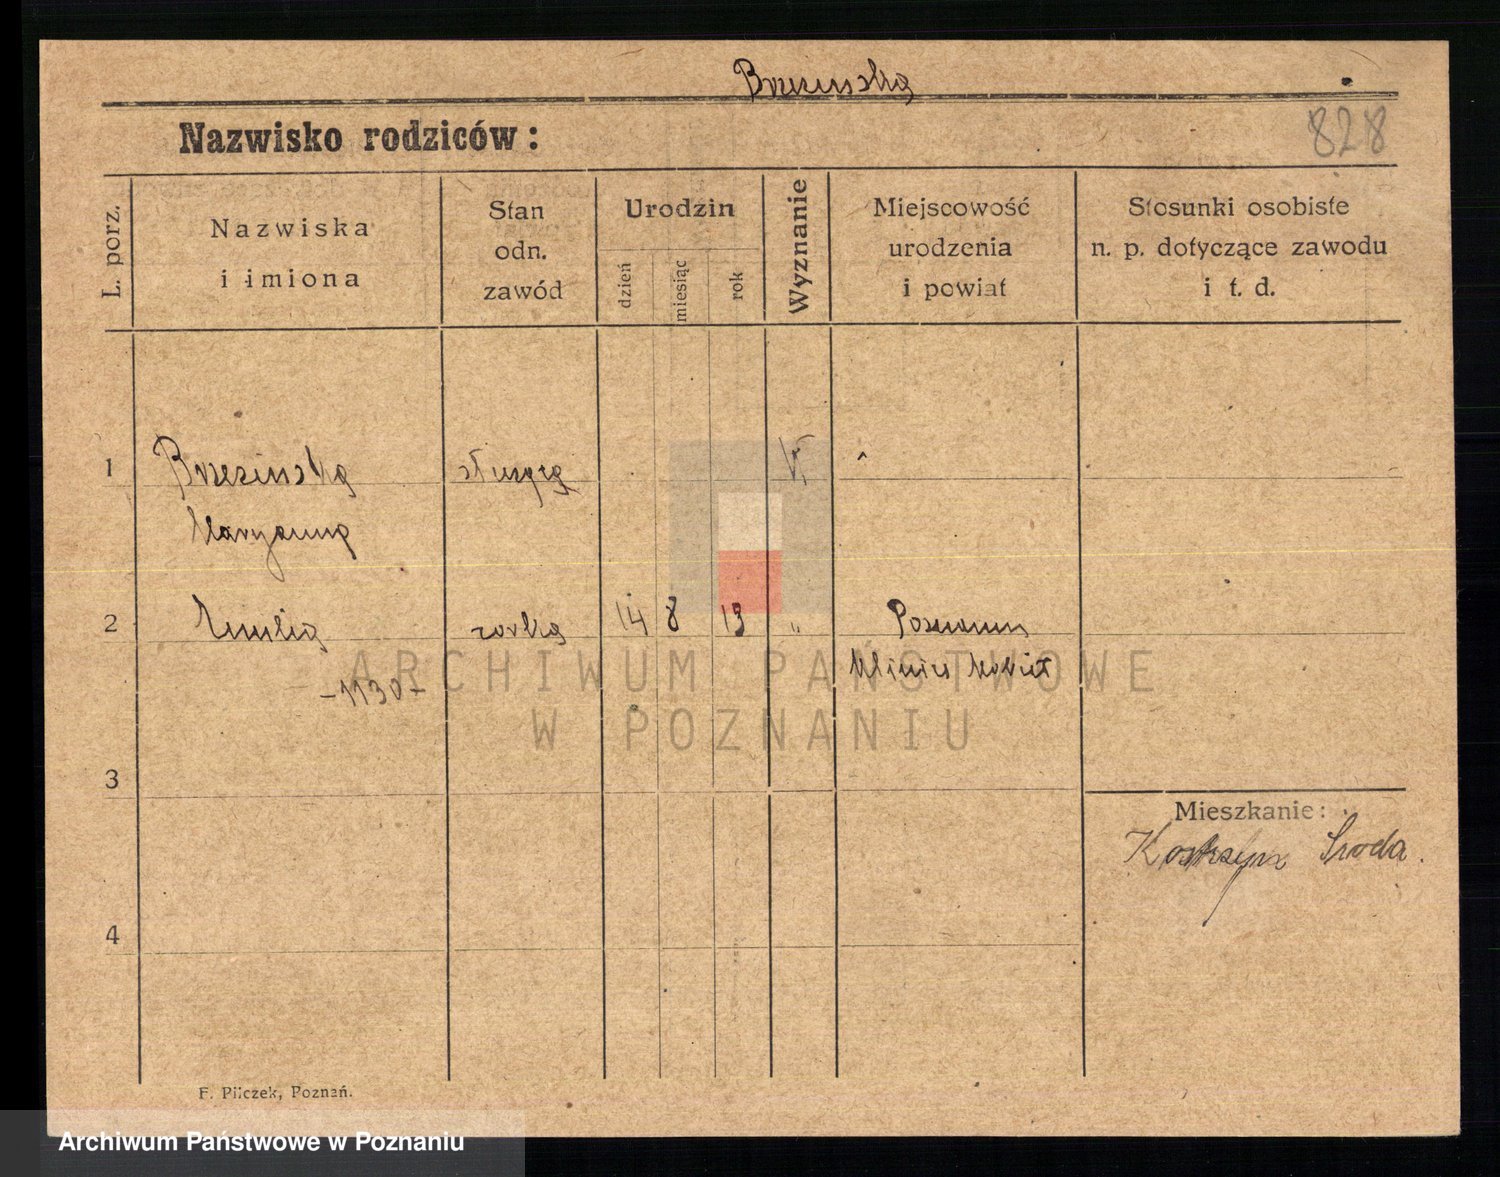 Brzezinska
Nazwisko rodziców:
828
L. porz.
Nazwiska
i imiona
Stan
odn.
zawód
Urodzin
dzień
miesiąc
rok
Wyznanie
Miejscowość
urodzenia
i powiat
Stosunki osobiste
n. p. dotyczące zawodu
i t. d.
1
Brzezinska
Maryanna
służąca
2
Emilia
córka
14 8 13
"
Poznaniu
Klinice Kobiet
-1130-
3
Mieszkanie:
Kostrzyn Sroda.
4
F. Pilczek, Poznań.
ARCHIWUM PAŃSTWOWE
W POZNANIU
Archiwum Państwowe w Poznaniu